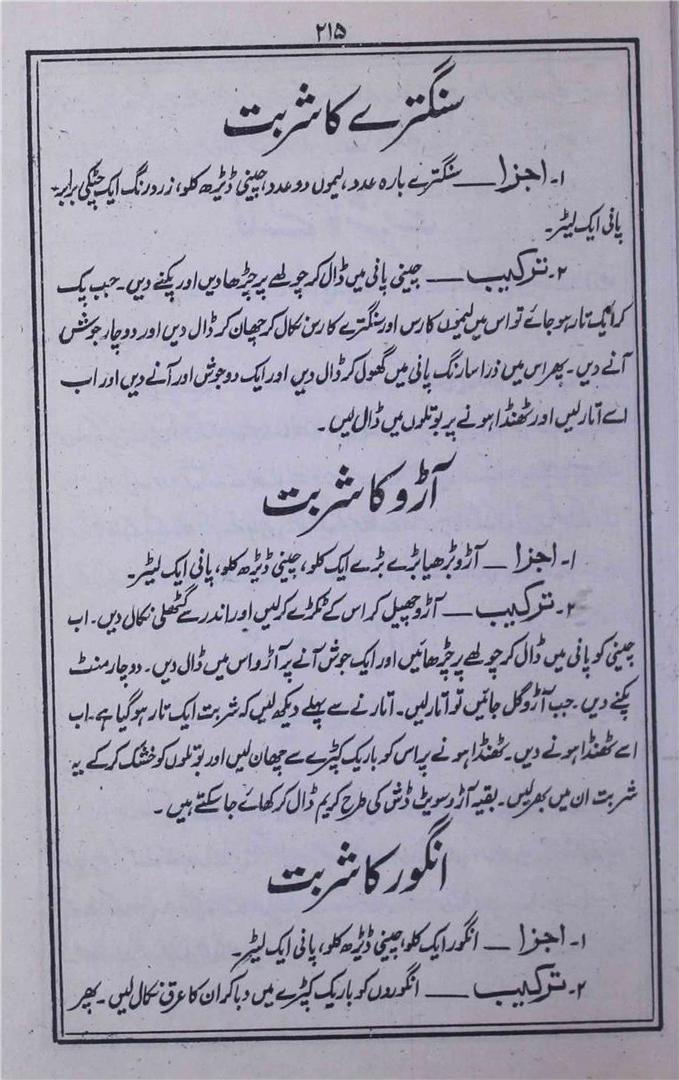 ۲۱۵
سنگترے کا شربت
۱۔ اجزا ــــ سنگترے بارہ عدد، لیموں دو عدد، چینی ڈیڑھ کلو، زرد رنگ ایک چٹکی برابر،
پانی ایک لیٹر۔
۲۔ ترکیب ــــ چینی پانی میں ڈال کر چولھے پر چڑھا دیں اور پکنے دیں۔ جب پک
کر ایک تار ہو جائے تو اس میں لیموں کا رس اور سنگترے کا رس نکال کر چھان کر ڈال دیں اور دو چار جوش
آنے دیں۔ پھر اس میں ذرا سا رنگ پانی میں گھول کر ڈال دیں اور ایک دو جوش اور آنے دیں اور اب
اسے اتار لیں اور ٹھنڈا ہونے پر بوتلوں میں ڈال لیں۔
آڑو کا شربت
۱۔ اجزا ــــ آڑو بڑھیا بڑے بڑے ایک کلو، چینی ڈیڑھ کلو، پانی ایک لیٹر۔
۲۔ ترکیب ــــ آڑو چھیل کر اس کے ٹکڑے کر لیں اور اندر سے گٹھلی نکال دیں۔ اب
چینی کو پانی میں ڈال کر چولھے پر چڑھائیں اور ایک جوش آنے پر آڑو اس میں ڈال دیں۔ دو چار منٹ
پکنے دیں۔ جب آڑو گل جائیں تو اتار لیں۔ اتارنے سے پہلے دیکھ لیں کہ شربت ایک تار ہو گیا ہے۔ اب
اسے ٹھنڈا ہونے دیں۔ ٹھنڈا ہونے پر اس کو باریک کپڑے سے چھان لیں اور بوتلوں کو خشک کر کے یہ
شربت ان میں بھر لیں۔ بقیہ آڑو سویٹ ڈش کی طرح کریم ڈال کر کھائے جا سکتے ہیں۔
انگور کا شربت
۱۔ اجزا ــــ انگور ایک کلو، چینی ڈیڑھ کلو، پانی ایک لیٹر۔
۲۔ ترکیب ــــ انگوروں کو باریک کپڑے میں دبا کر ان کا عرق نکال لیں۔ پھر